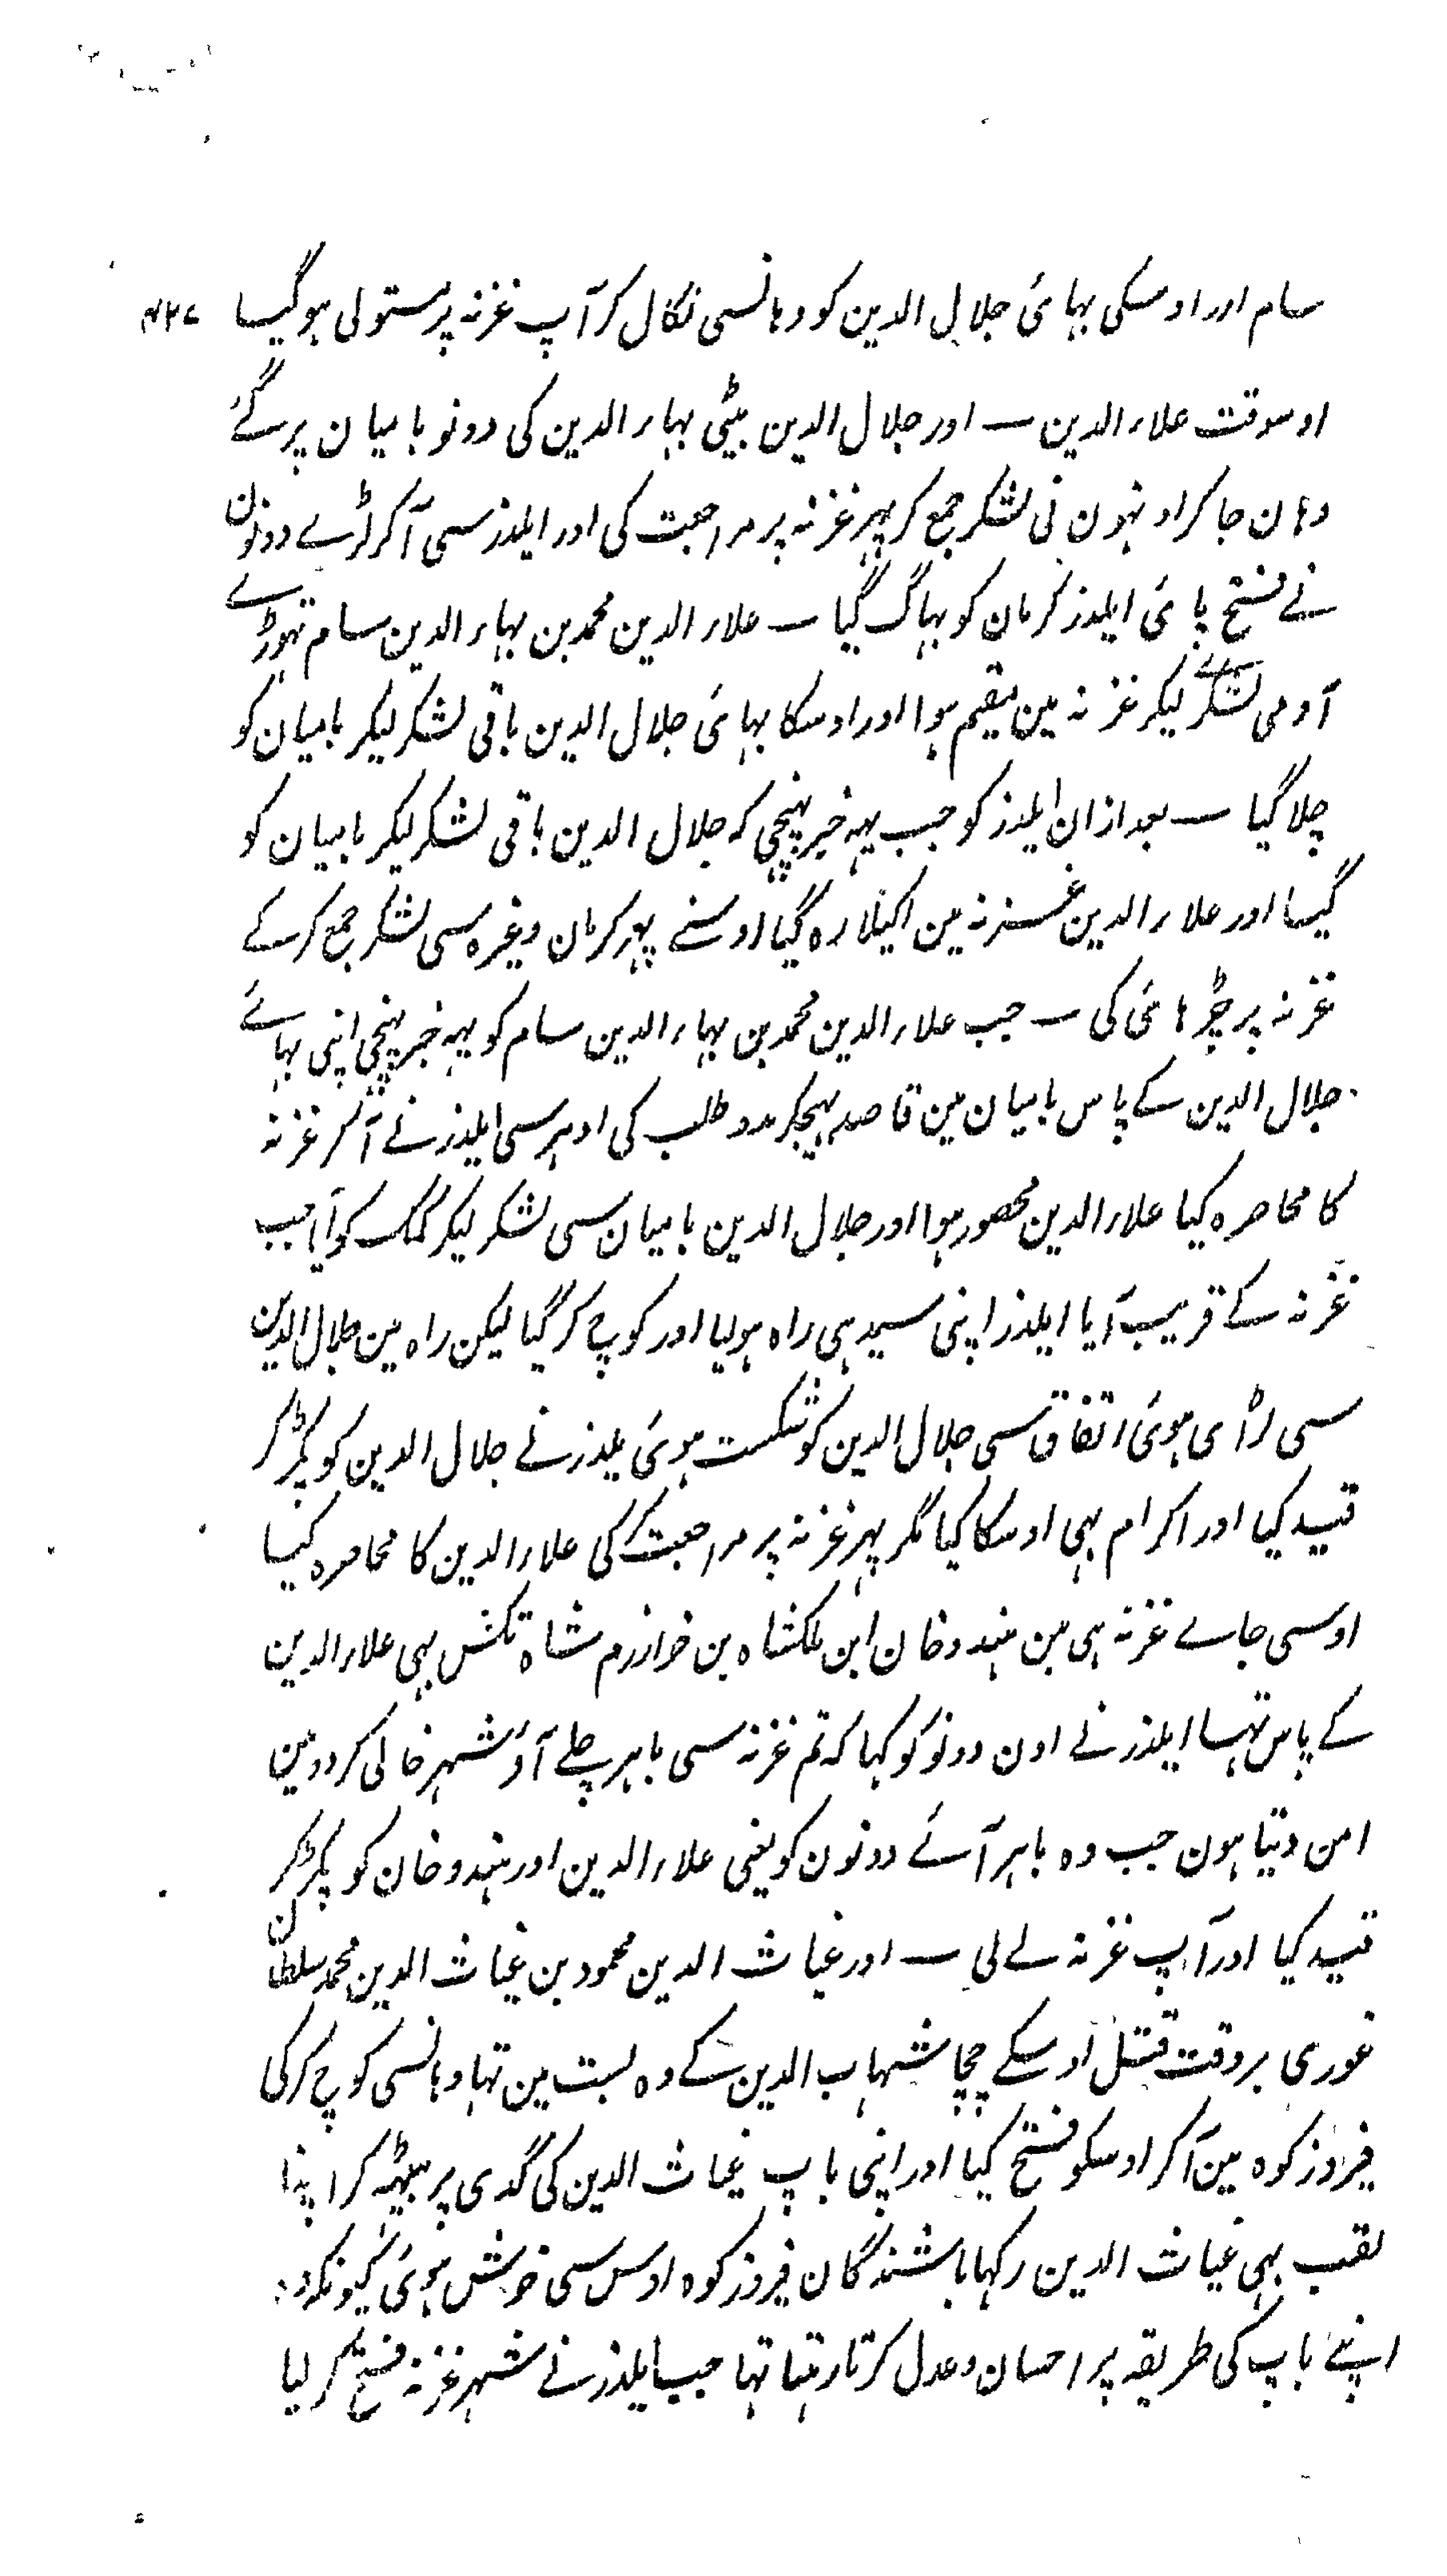 سام اور اوسکی بہائی جلال الدین کو وہانسی نکال کر آپ غزنہ پر مستولی ہوگیا ۴۲۷
اوسوقت علاء الدین — اور جلال الدین بیٹی بہاء الدین کی دونو بامیان پر گئے
وہان جا کر اونہون نی لشکر جمع کر پہر غزنہ پر مراجعت کی اور ایلدز سی آ کر لڑے دونون
نے فتح پائی ایلدز کرمان کو بہاگ گیا — علاء الدین محمد بن بہاء الدین سام تہوڑے
آدمی لشکر لیکر غزنہ مین مقیم ہوا اور اوسکا بہائی جلال الدین باقی لشکر لیکر بامیان کو
چلا گیا — بعد ازان ایلدز کو جب یہہ خبر پہنچی کہ جلال الدین باقی لشکر لیکر بامیان کو
گیا اور علاء الدین غزنہ مین اکیلا رہ گیا اوسنے پہر کرمان وغیرہ سی لشکر جمع کر کے
غزنہ پر چڑہائی کی — جب علاء الدین محمد بن بہاء الدین سام کو یہہ خبر پہنچی اپنی بہائے
جلال الدین کے پاس بامیان مین قاصد بہیجکر مدد طلب کی اودہر سی ایلدز نے آ کر غزنہ
کا محاصرہ کیا علاء الدین محصور ہوا اور جلال الدین بامیان سی لشکر لیکر کمک کو آیا جب
غزنہ کے قریب آیا ایلدز اپنی سیدہی راہ ہولیا اور کوچ کر گیا لیکن راہ مین جلال الدین
سی لڑائی ہوئی اتفاق سی جلال الدین کو شکست ہوئی یلدز نے جلال الدین کو پکڑ کر
قید کیا اور اکرام بہی اوسکا کیا مگر پہر غزنہ پر مراجعت کی علاء الدین کا محاصرہ کیا
اوسی جاے غزنہ ہی مین ہندوخان ابن ملکشاہ بن خوارزم شاہ تکش بہی علاء الدین
کے پاس تہا ایلدز نے اون دونو کو کہا کہ تم غزنہ سی باہر چلے آؤ شہر خالی کردو مین
امن دیتا ہون جب وہ باہر آئے دونون کو یعنی علاء الدین اور ہندوخان کو پکڑ کر
قید کیا اور آپ غزنہ لے لی — اور غیاث الدین محمود بن غیاث الدین محمد سلطان
غوری بروقت قتل اوسکے چچا شہاب الدین کے وہ بست مین تہا وہانسی کوچ کر کی
فیروزکوہ مین آ کر اوسکو فتح کیا اور اپنی باپ غیاث الدین کی گدی پر بیٹہہ کر اپنا
لقب بہی غیاث الدین رکہا باشندگان فیروزکوہ اوس سی خوش ہوئی کیونکہ وہ
اپنے باپ کی طریقہ پر احسان و عدل کرتا رہتا تہا جب ایلدز نے شہر غزنہ فتح کر لیا